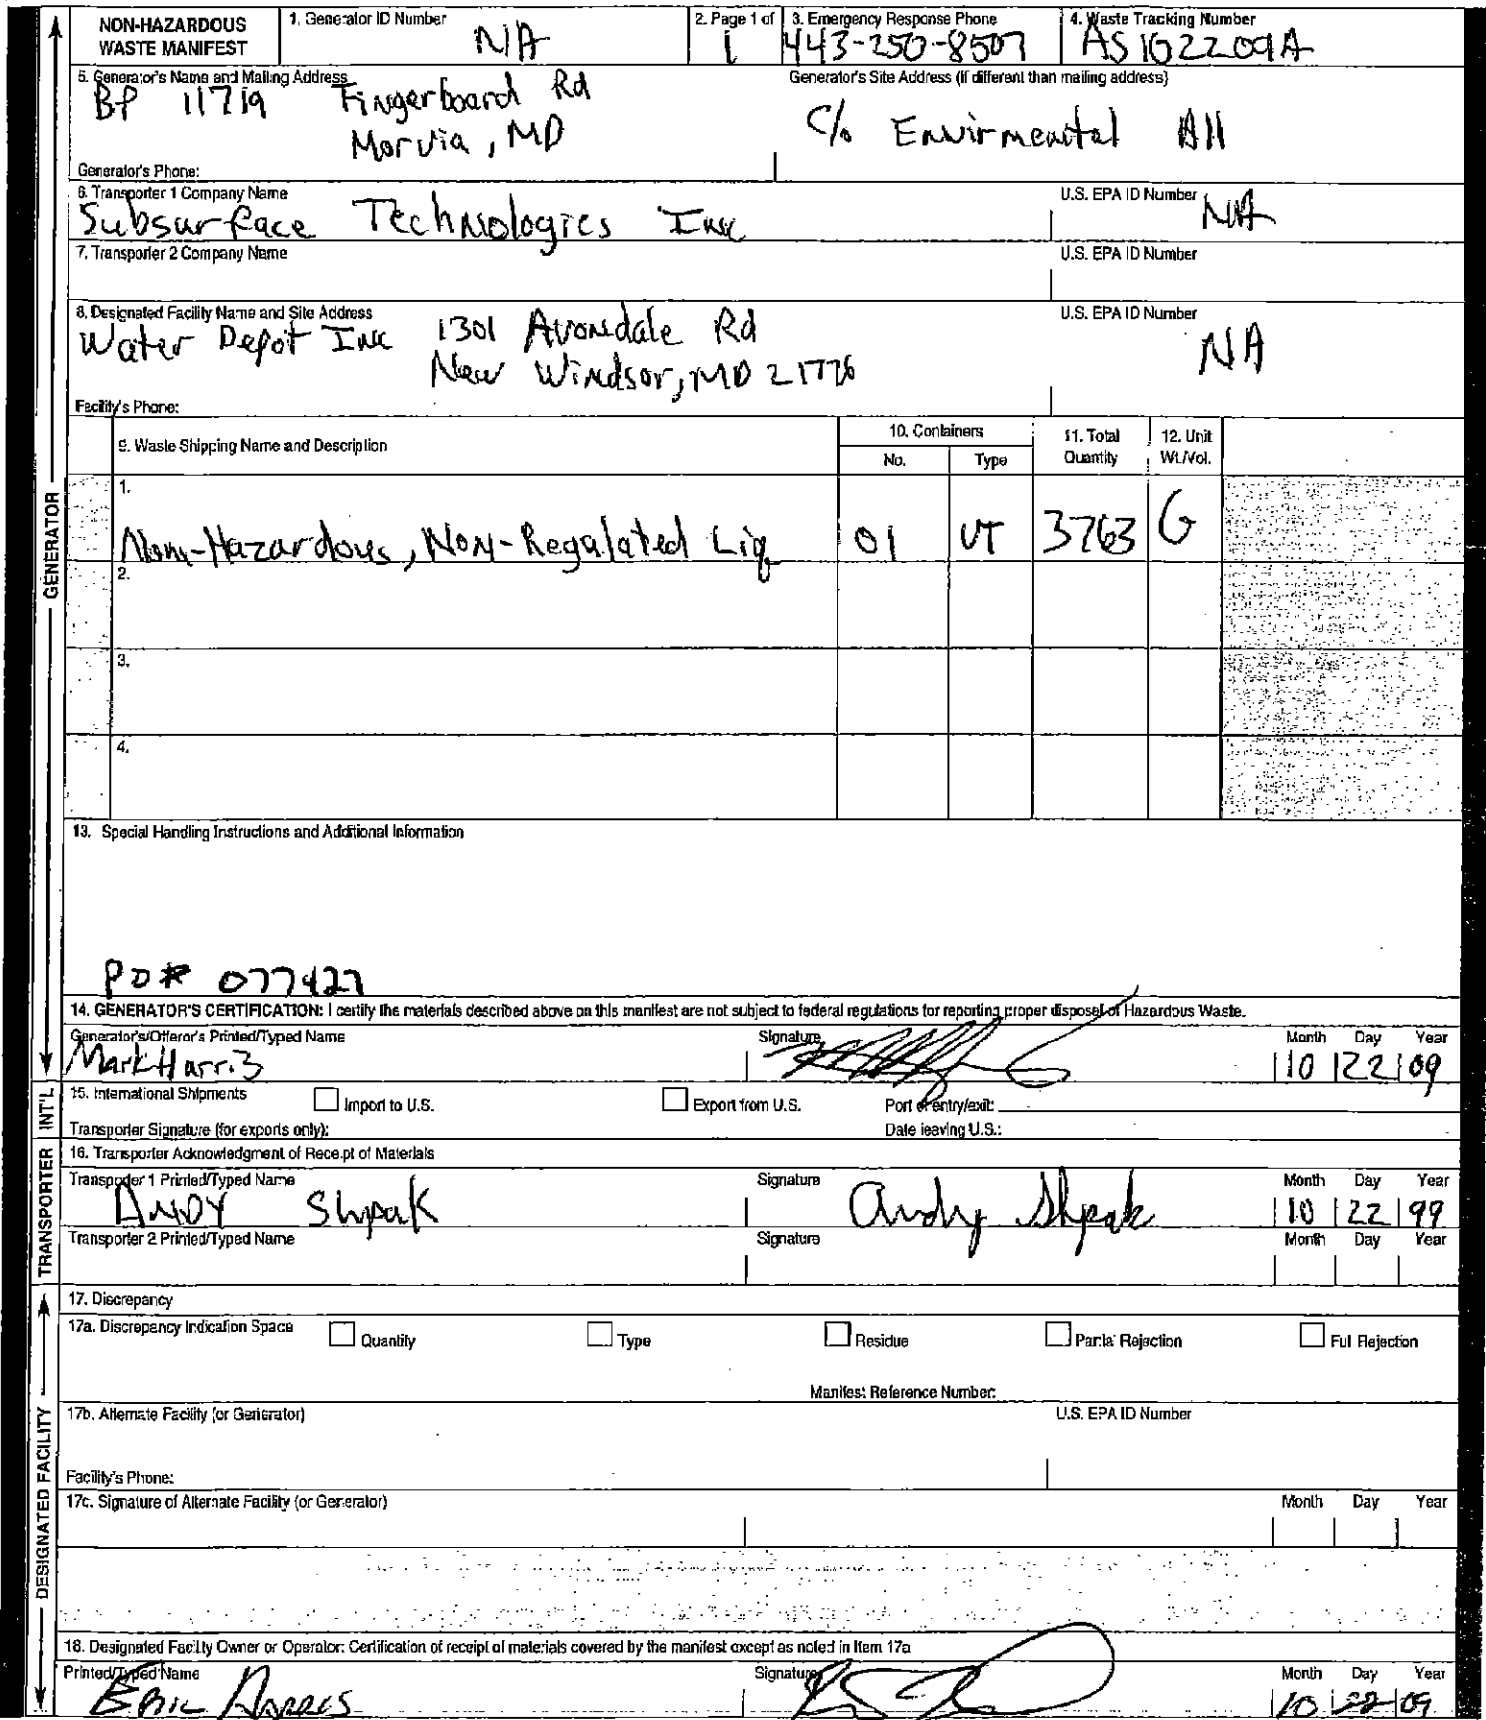 NON-HAZARDOUS
WASTE MANIFEST
1. Generator ID Number
NA
2. Page 1 of
1
3. Emergency Response Phone
443-250-8507
4. Waste Tracking Number
AS102209A
5. Generator's Name and Mailing Address
BP 11719 Fingerboard Rd
Morvia, MD
Generator's Site Address (if different than mailing address)
C/o Envirmental All
Generator's Phone:
6. Transporter 1 Company Name
Subsurface Technologies Inc
U.S. EPA ID Number
NA
7. Transporter 2 Company Name
U.S. EPA ID Number
8. Designated Facility Name and Site Address
Water Depot Inc 1301 Avondale Rd
New Windsor, MD 21776
U.S. EPA ID Number
NA
Facility's Phone:
9. Waste Shipping Name and Description
10. Containers
No.
Type
11. Total
Quantity
12. Unit
Wt./Vol.
GENERATOR
1.
Non-Hazardous, Non-Regalated Liq
01
VT
3763
G
2.
3.
4.
13. Special Handling Instructions and Additional Information
PO# 077427
14. GENERATOR'S CERTIFICATION: I certify the materials described above on this manifest are not subject to federal regulations for reporting proper disposal of Hazardous Waste.
Generator's/Offeror's Printed/Typed Name
Signature
Month Day Year
Mark Harris
10 22 09
INT'L
15. International Shipments
Import to U.S.
Export from U.S.
Port of entry/exit:
Transporter Signature (for exports only):
Date leaving U.S.:
TRANSPORTER
16. Transporter Acknowledgment of Receipt of Materials
Transporter 1 Printed/Typed Name
Signature
Month Day Year
ANDY Shpak
Andy Shpak
10 22 99
Transporter 2 Printed/Typed Name
Signature
Month Day Year
DESIGNATED FACILITY
17. Discrepancy
17a. Discrepancy Indication Space
Quantity
Type
Residue
Partial Rejection
Full Rejection
Manifest Reference Number:
17b. Alternate Facility (or Generator)
U.S. EPA ID Number
Facility's Phone:
17c. Signature of Alternate Facility (or Generator)
Month Day Year
18. Designated Facility Owner or Operator: Certification of receipt of materials covered by the manifest except as noted in Item 17a
Printed/Typed Name
Signature
Month Day Year
Eric Harris
10 22 09